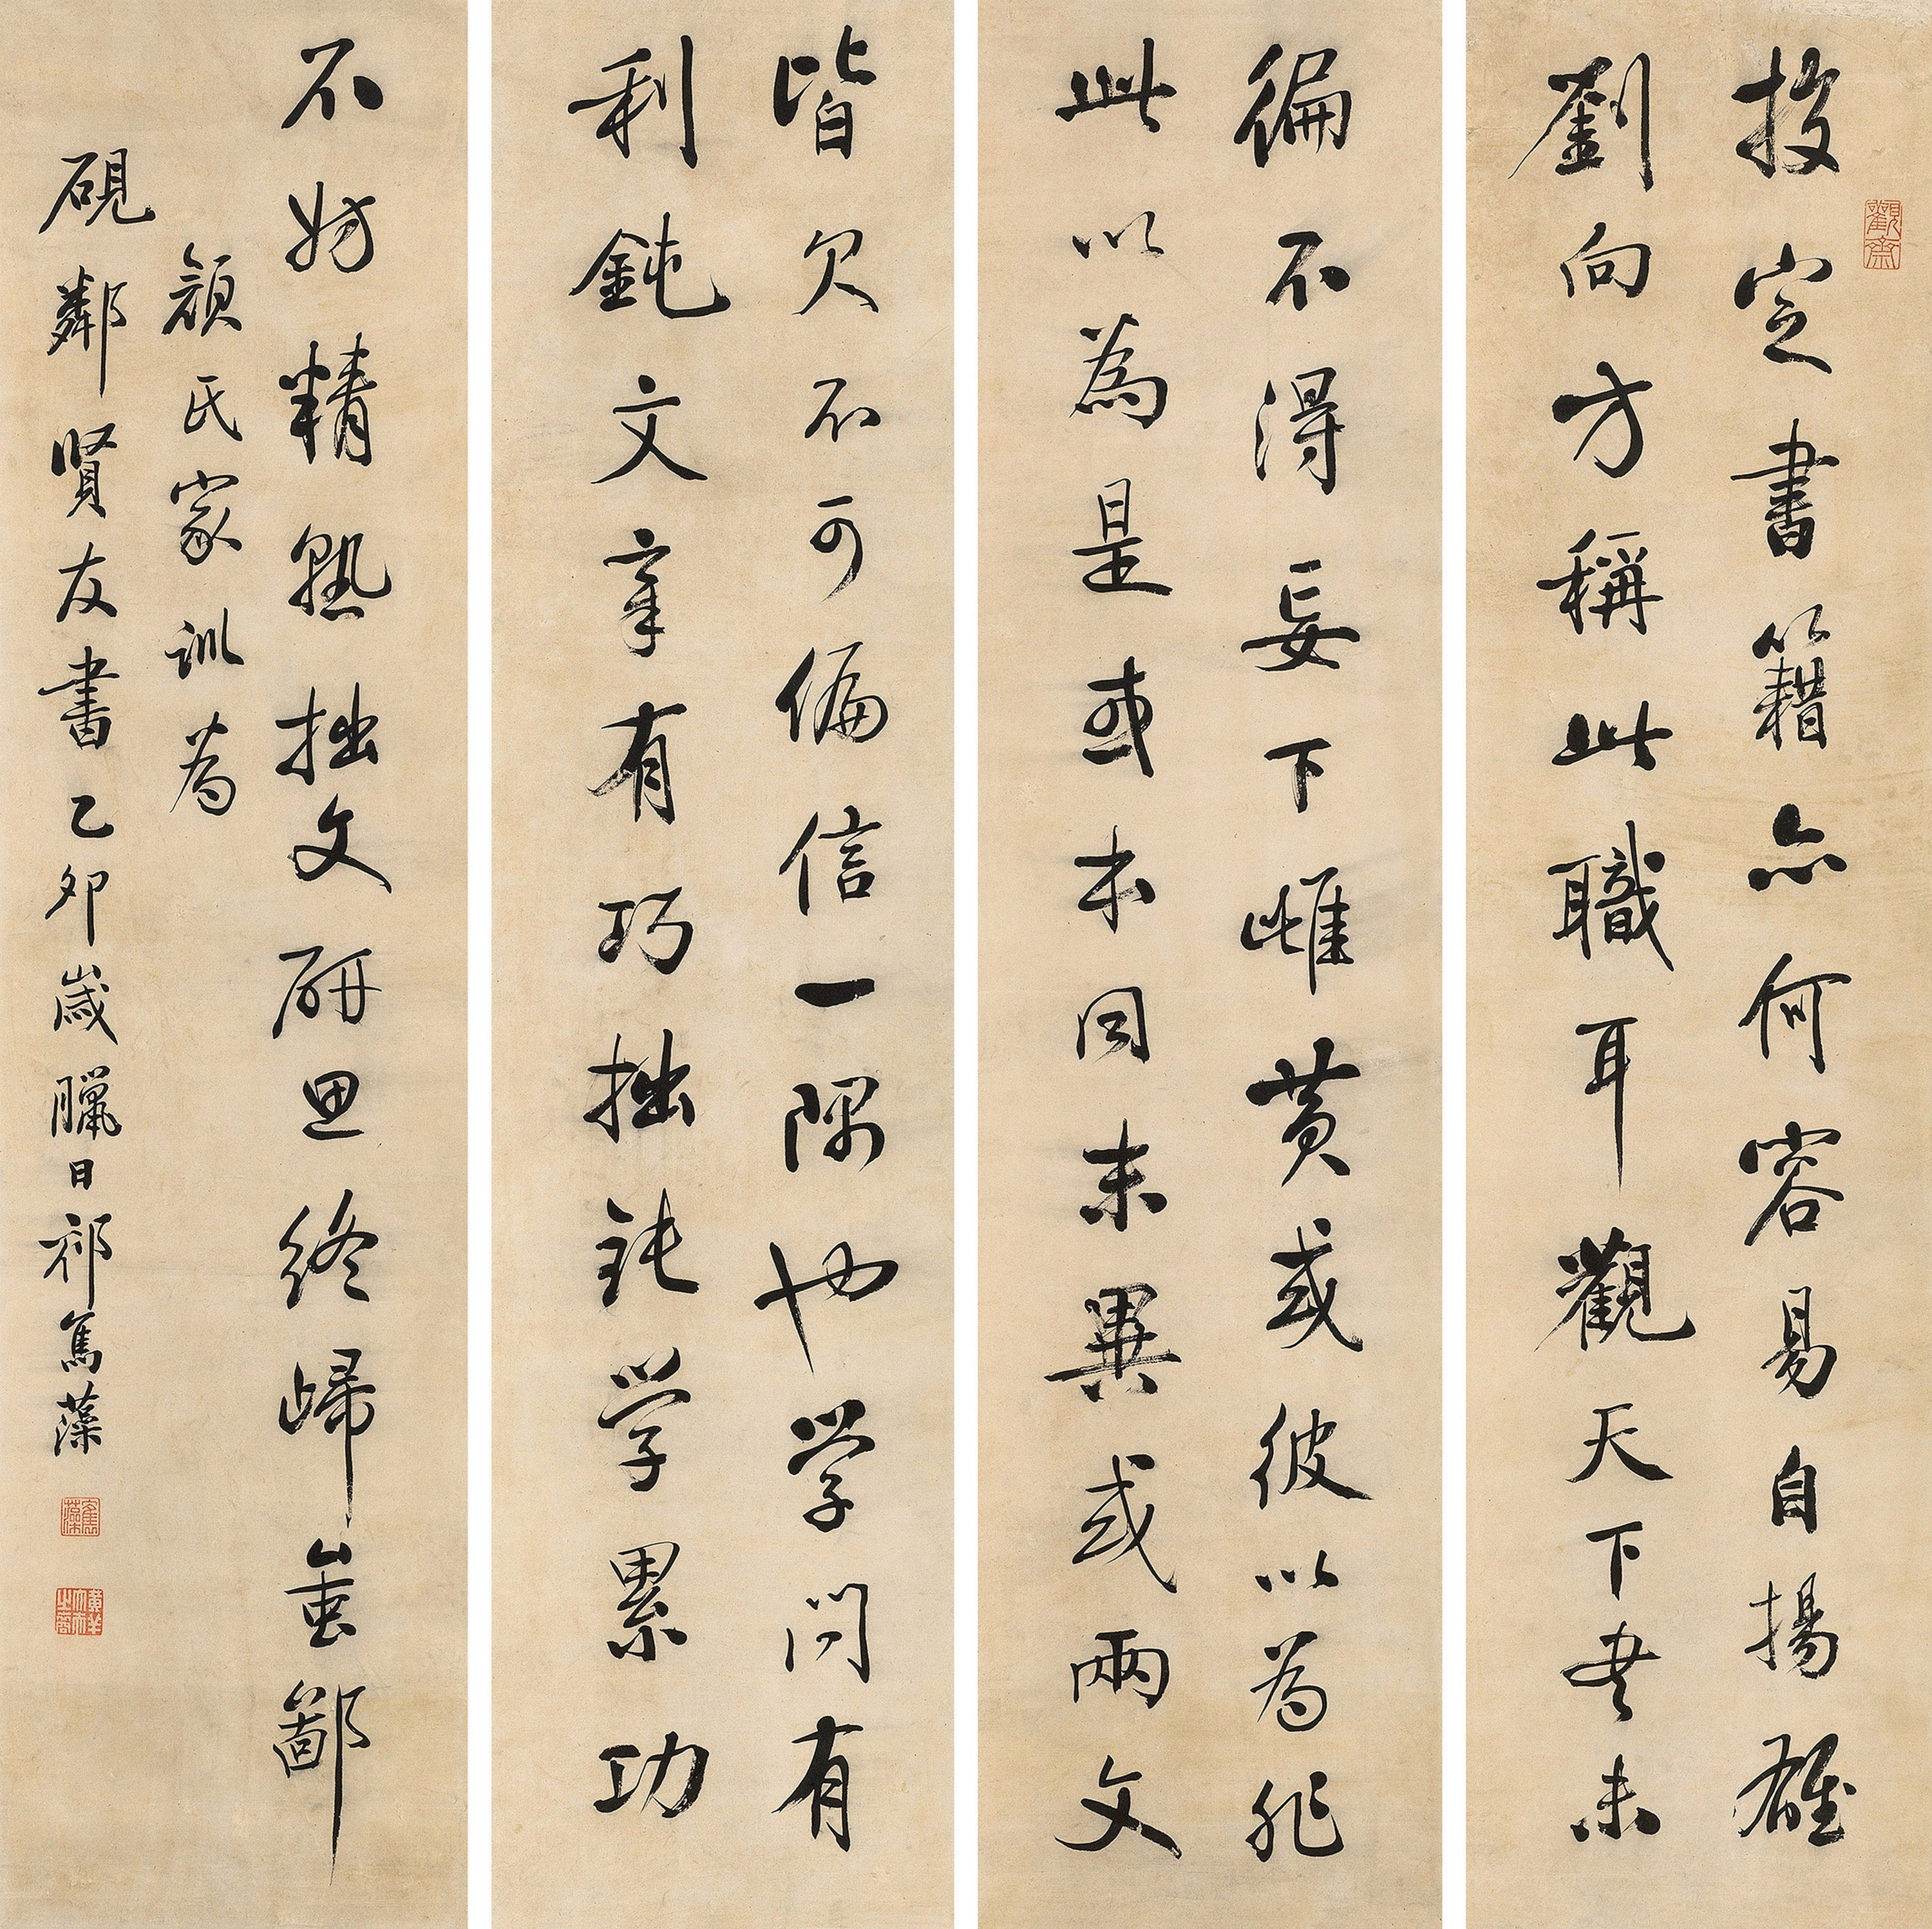 校定書籍亦何容易自揚雄
劉向方稱此職耳觀天下書未
徧不得妄下雌黃或彼以為非
此以為是或本同末異或兩文
皆欠不可偏信一隅也學問有
利鈍文章有巧拙拙鈍學累功
不妨精熟拙文研思終歸蚩鄙
顏氏家訓為
硯鄰賢友書乙卯歲臘日祁寯藻
觀齋
寯藻